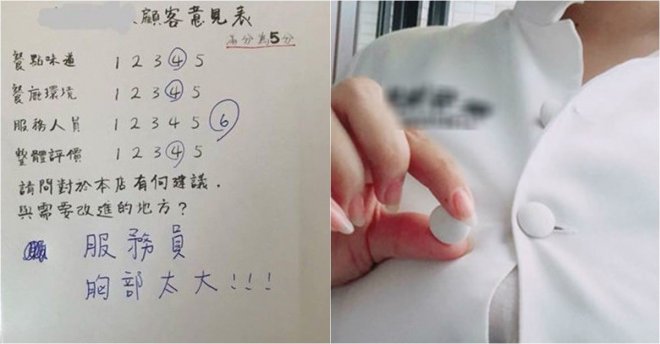 顧客意見表
滿分為5分
餐點味道 1 2 3 4 5
餐廳環境 1 2 3 4 5
服務人員 1 2 3 4 5 6
整體評價 1 2 3 4 5
請問對於本店有何建議,
與需要改進的地方?
服務員
胸部太大!!!